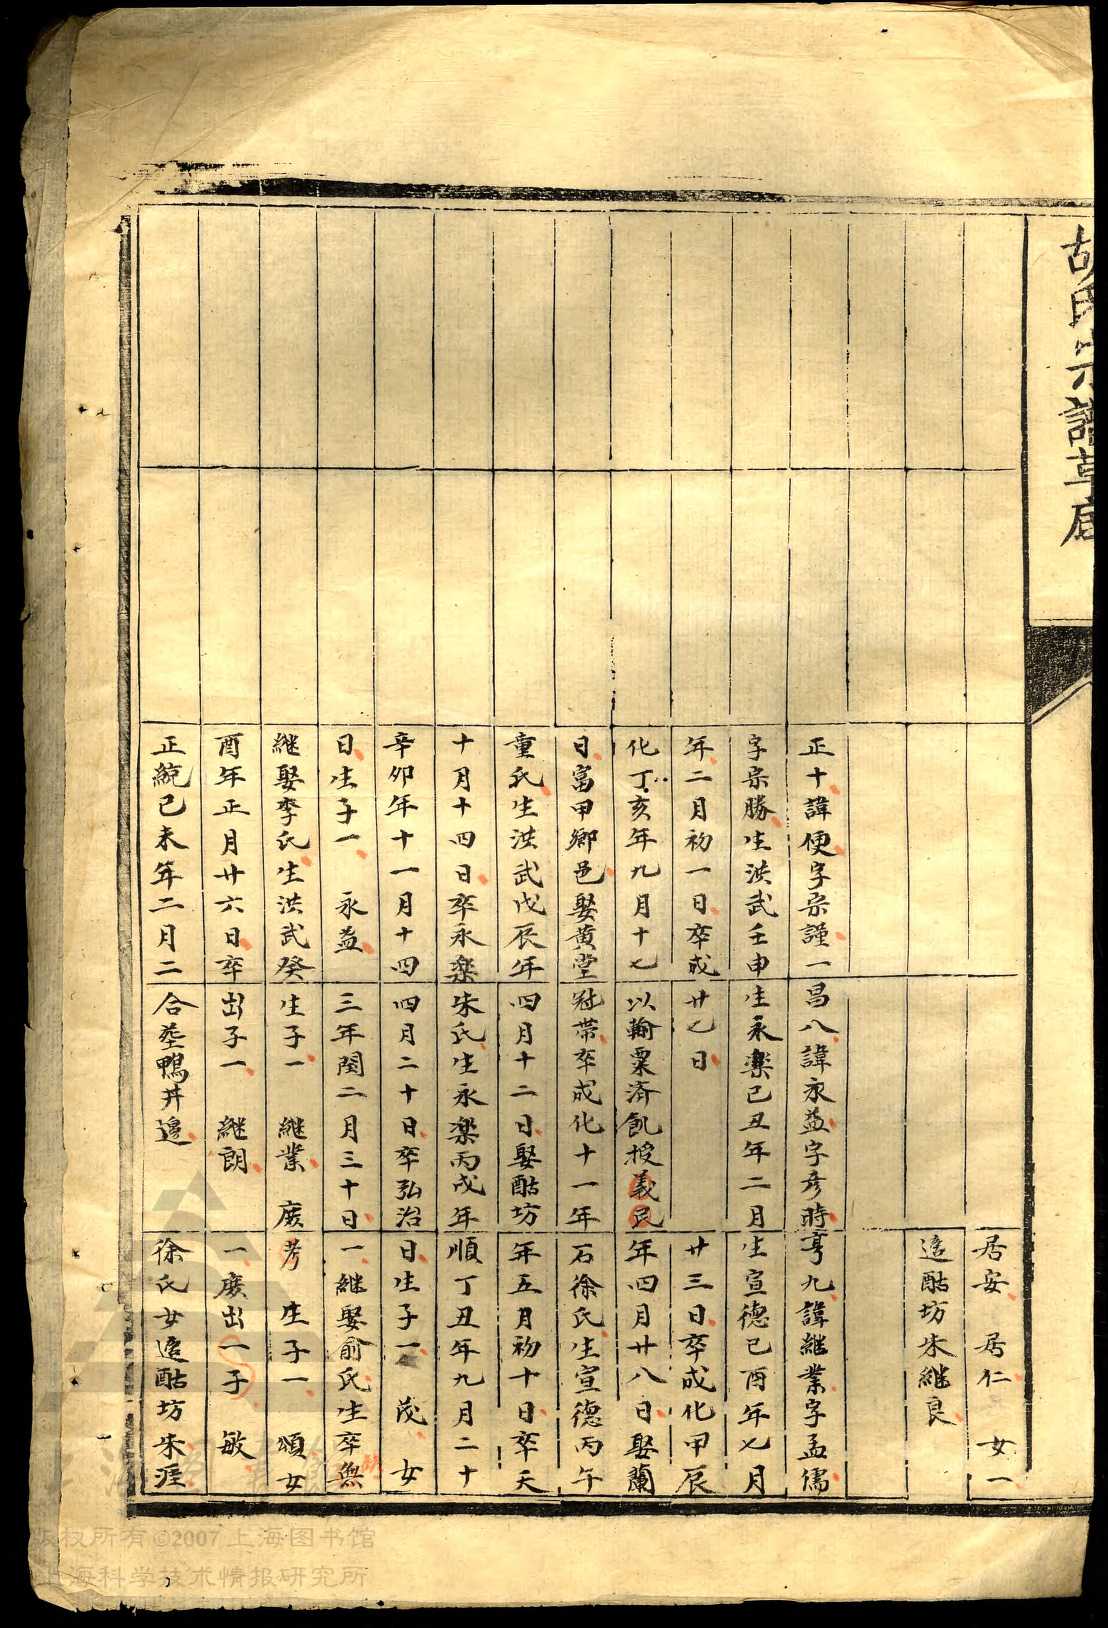 胡氏宗譜草底
居安 居仁 女一
適酤坊朱繼良
正十諱便字宗謹一
字宗勝生洪武壬申
年二月初一日卒成
化丁亥年九月十七
日富甲鄉邑娶黃堂
童氏生洪武戊辰年
十月十四日卒永樂
辛卯年十一月十四
日生子一 永益
繼娶李氏生洪武癸
酉年正月廿六日卒
正統己未年二月二
昌八諱永益字彥時
生永樂己丑年二月
廿七日
以輸粟濟飢授義民
冠帶卒成化十一年
四月十二日娶酤坊
朱氏生永樂丙戌年
四月二十日卒弘治
三年閏二月三十日
生子一 繼業 庶
出子一 繼朗
合塟鴨井邊
亨九諱繼業字孟儒
生宣德己酉年七月
廿三日卒成化甲辰
年四月廿八日娶蘭
石徐氏生宣德丙午
年五月初十日卒天
順丁丑年九月二十
日生子一 茂 女
一繼娶俞氏生卒無
考 生子一 頌女
一庶出一子 敏
徐氏女適酤坊朱涯
版权所有©2007上海图书馆
上海科学技术情报研究所